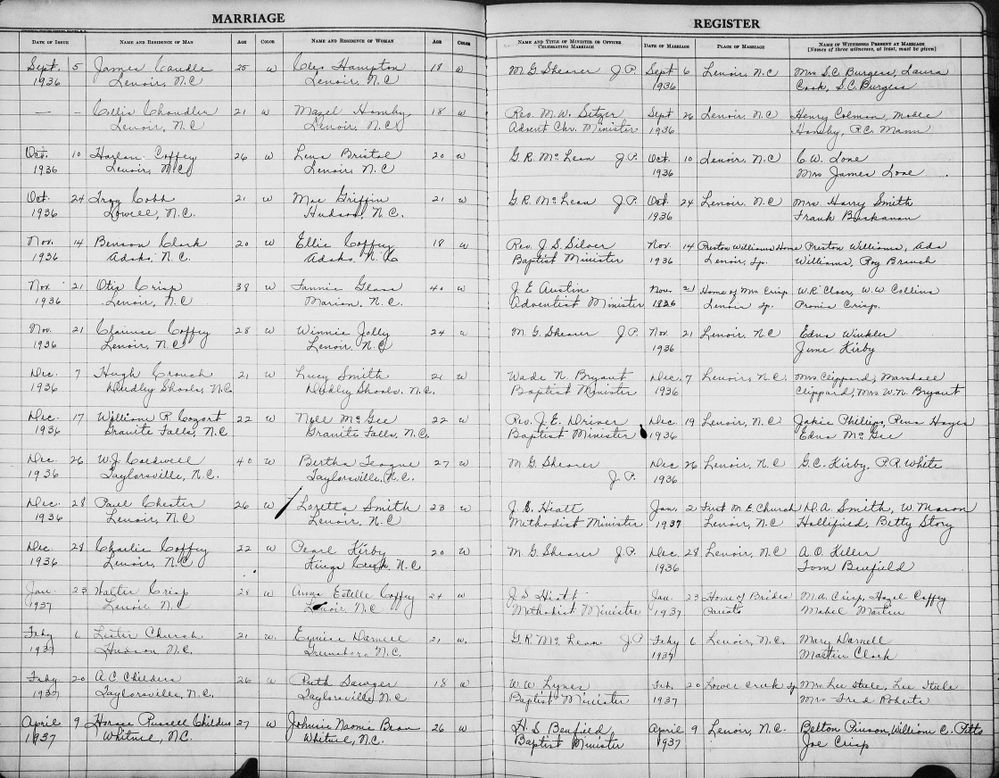 MARRIAGE
REGISTER
DATE OF ISSUE NAME AND RESIDENCE OF MAN AGE COLOR NAME AND RESIDENCE OF WOMAN AGE COLOR NAME AND TITLE OF MINISTER OR OFFICER CELEBRATING MARRIAGE DATE OF MARRIAGE PLACE OF MARRIAGE NAME OF WITNESSES PRESENT AT MARRIAGE
(Names of three witnesses, at least, must be given)
Sept. 5 25 W Cleo Hampton 18 W M. G. Shearer J.P. Sept 6 Lenoir, N.C Mrs S.C. Burgess, Laura
1936 Lenoir, N.C Lenoir, N.C 1936 Cook, S.C. Burgess
— — Ellis Chandler 21 W Mazel Hamby 18 W Rev. M.W. Setzer Sept 26 Lenoir N.C Henry Colman, Mable
Lenoir, N.C Lenoir, N.C Advent Chr. Minister 1936 Hamby, P.C. Mann
Oct. 10 Harlan Coffey 26 W Lena Bristol 20 W G. R. McLean J.P. Oct. 10 Lenoir, N.C C.W. Love
1936 Lenoir, N.C Lenoir N.C 1936 Mrs James Love
Oct. 24 Troy Cobb 21 W Mae Griffin 21 W G. R. McLean J.P. Oct. 24 Lenoir, N.C Mrs Harry Smith
1936 Lowell, N.C. Hudson, N.C. 1936 Frank Buchanan
Nov. 14 Benson Clark 20 W Ellie Coffey 18 W Rev. J. S. Silver Nov. 14 Preston Williams Home Preston Williams, Ada
1936 Adako, N.C. Adako, N.C Baptist Minister 1936 Lenoir, Tp. Williams, Roy Branch
Nov 21 Otis Crisp 38 W Fannie Glass 40 W J. E Austin Nov. 21 Home of Mrs Crisp W.R Cloer, W.W Collins
1936 Lenoir, N.C Marion, N.C. Adventist Minister 1826 Lenoir Tp. Crisp.
Nov. 21 Coffey 28 W Winnie Jolly 24 W M. G. Shearer J.P. Nov 21 Lenoir, N.C Edna Winkler
1936 Lenoir, N.C Lenoir N.C 1936 June Kirby
Dec. 7 Hugh Crouch 21 W Lucy Smith 21 W Wade N. Bryant Dec. 7 Lenoir, N.C. Mrs Clippard, Marshall
1936 Dudley Shoals, N.C. Dudley Shoals, N.C. Baptist Minister 1936 Clippard, Mrs W.N. Bryant
Dec. 17 William R. Cozart 22 W Nell McGee 22 W Rev. J. E. Driver Dec. 19 Lenoir, N.C Jakie Phillips, Rena Hayes
1936 Granite Falls, N.C Granite Falls, N.C. Baptist Minister 1936 Edna McGee
Dec. 26 W.J. Caldwell 40 W Bertha Teague 27 W M. G Shearer Dec 26 Lenoir, N.C G.C. Kirby, P.R. White
1936 Taylorsville, N.C. Taylorsville, N.C. J.P. 1936
Dec. 28 Paul Chester 26 W Loretta Smith 23 W J. S. Hiatt Jan. 2 First M. E Church D.A. Smith, W. Mason
1936 Lenoir, N.C Lenoir, N.C Methodist Minister 1937 Lenoir, N.C Hallifield, Betty Story
Dec. 28 Charlie Coffey 22 W Pearl Kirby 20 W M. G. Shearer J.P. Dec. 28 Lenoir, N.C A. O. Keller
1936 Lenoir, N.C Kings Creek, N.C 1936 Tom Benfield
Jan. 23 Walter Crisp 28 W Anna Estelle Coffey 24 W J.S Hiatt Jan. 23 Home of Brides M.A. Crisp, Hazel Coffey
1937 Lenoir N.C Lenoir N.C Methodist Minister 1937 Parents Mabel Martin
Feby 6 Lester Church 21 W. Darnell 21 W. G. R. McLean J.P Feby 6 Lenoir, N.C. Mary Darnell
1937 Hudson N.C. Greensboro N.C. 1937 Martin Clark
Feby 20 A C Childers 26 W Ruth 18 W W.W Feb. 20 Lower Creek Tp Mrs Lee Steele, Lee Steele
1937 Taylorsville, N.C. Taylorsville N.C Baptist Minister 1937 Mrs Fred Roberts
April 9 Horace Russell Childers 27 W Johnsie Naomi Bean 26 W H. S Benfield April 9 Lenoir, N.C. Belton Pinson, William C. Pitts
1937 Whitnel, N.C. Whitnel, N.C. Baptist Minister 1937 Joe Crisp